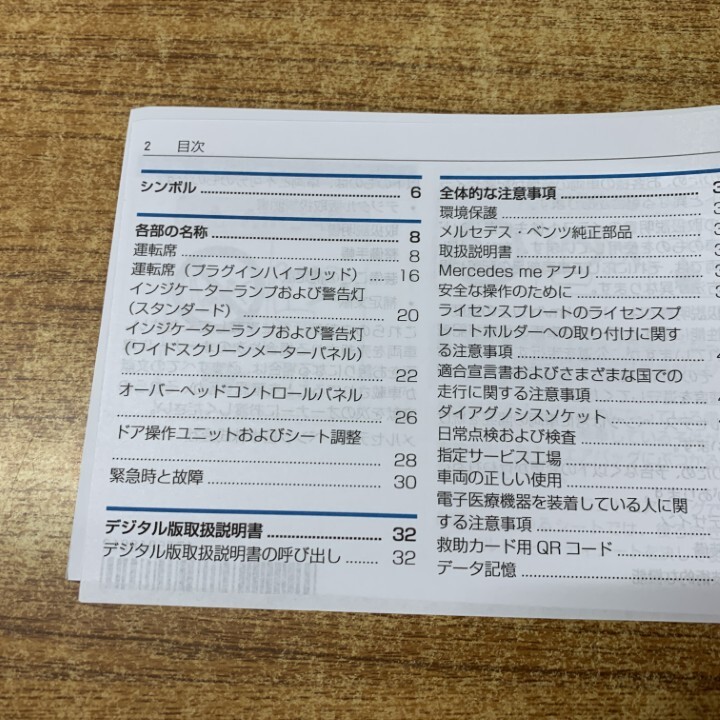 2 目次
シンボル 6
各部の名称 8
運転席 8
運転席（プラグインハイブリッド） 16
インジケーターランプおよび警告灯
（スタンダード） 20
インジケーターランプおよび警告灯
（ワイドスクリーンメーターパネル）
22
オーバーヘッドコントロールパネル
26
ドア操作ユニットおよびシート調整
28
緊急時と故障 30
デジタル版取扱説明書 32
デジタル版取扱説明書の呼び出し 32
全体的な注意事項
環境保護
メルセデス・ベンツ純正部品
取扱説明書
Mercedes me アプリ
安全な操作のために
ライセンスプレートのライセンスプ
レートホルダーへの取り付けに関す
る注意事項
適合宣言書およびさまざまな国での
走行に関する注意事項
ダイアグノシスソケット
日常点検および検査
指定サービス工場
車両の正しい使用
電子医療機器を装着している人に関
する注意事項
救助カード用 QR コード
データ記憶